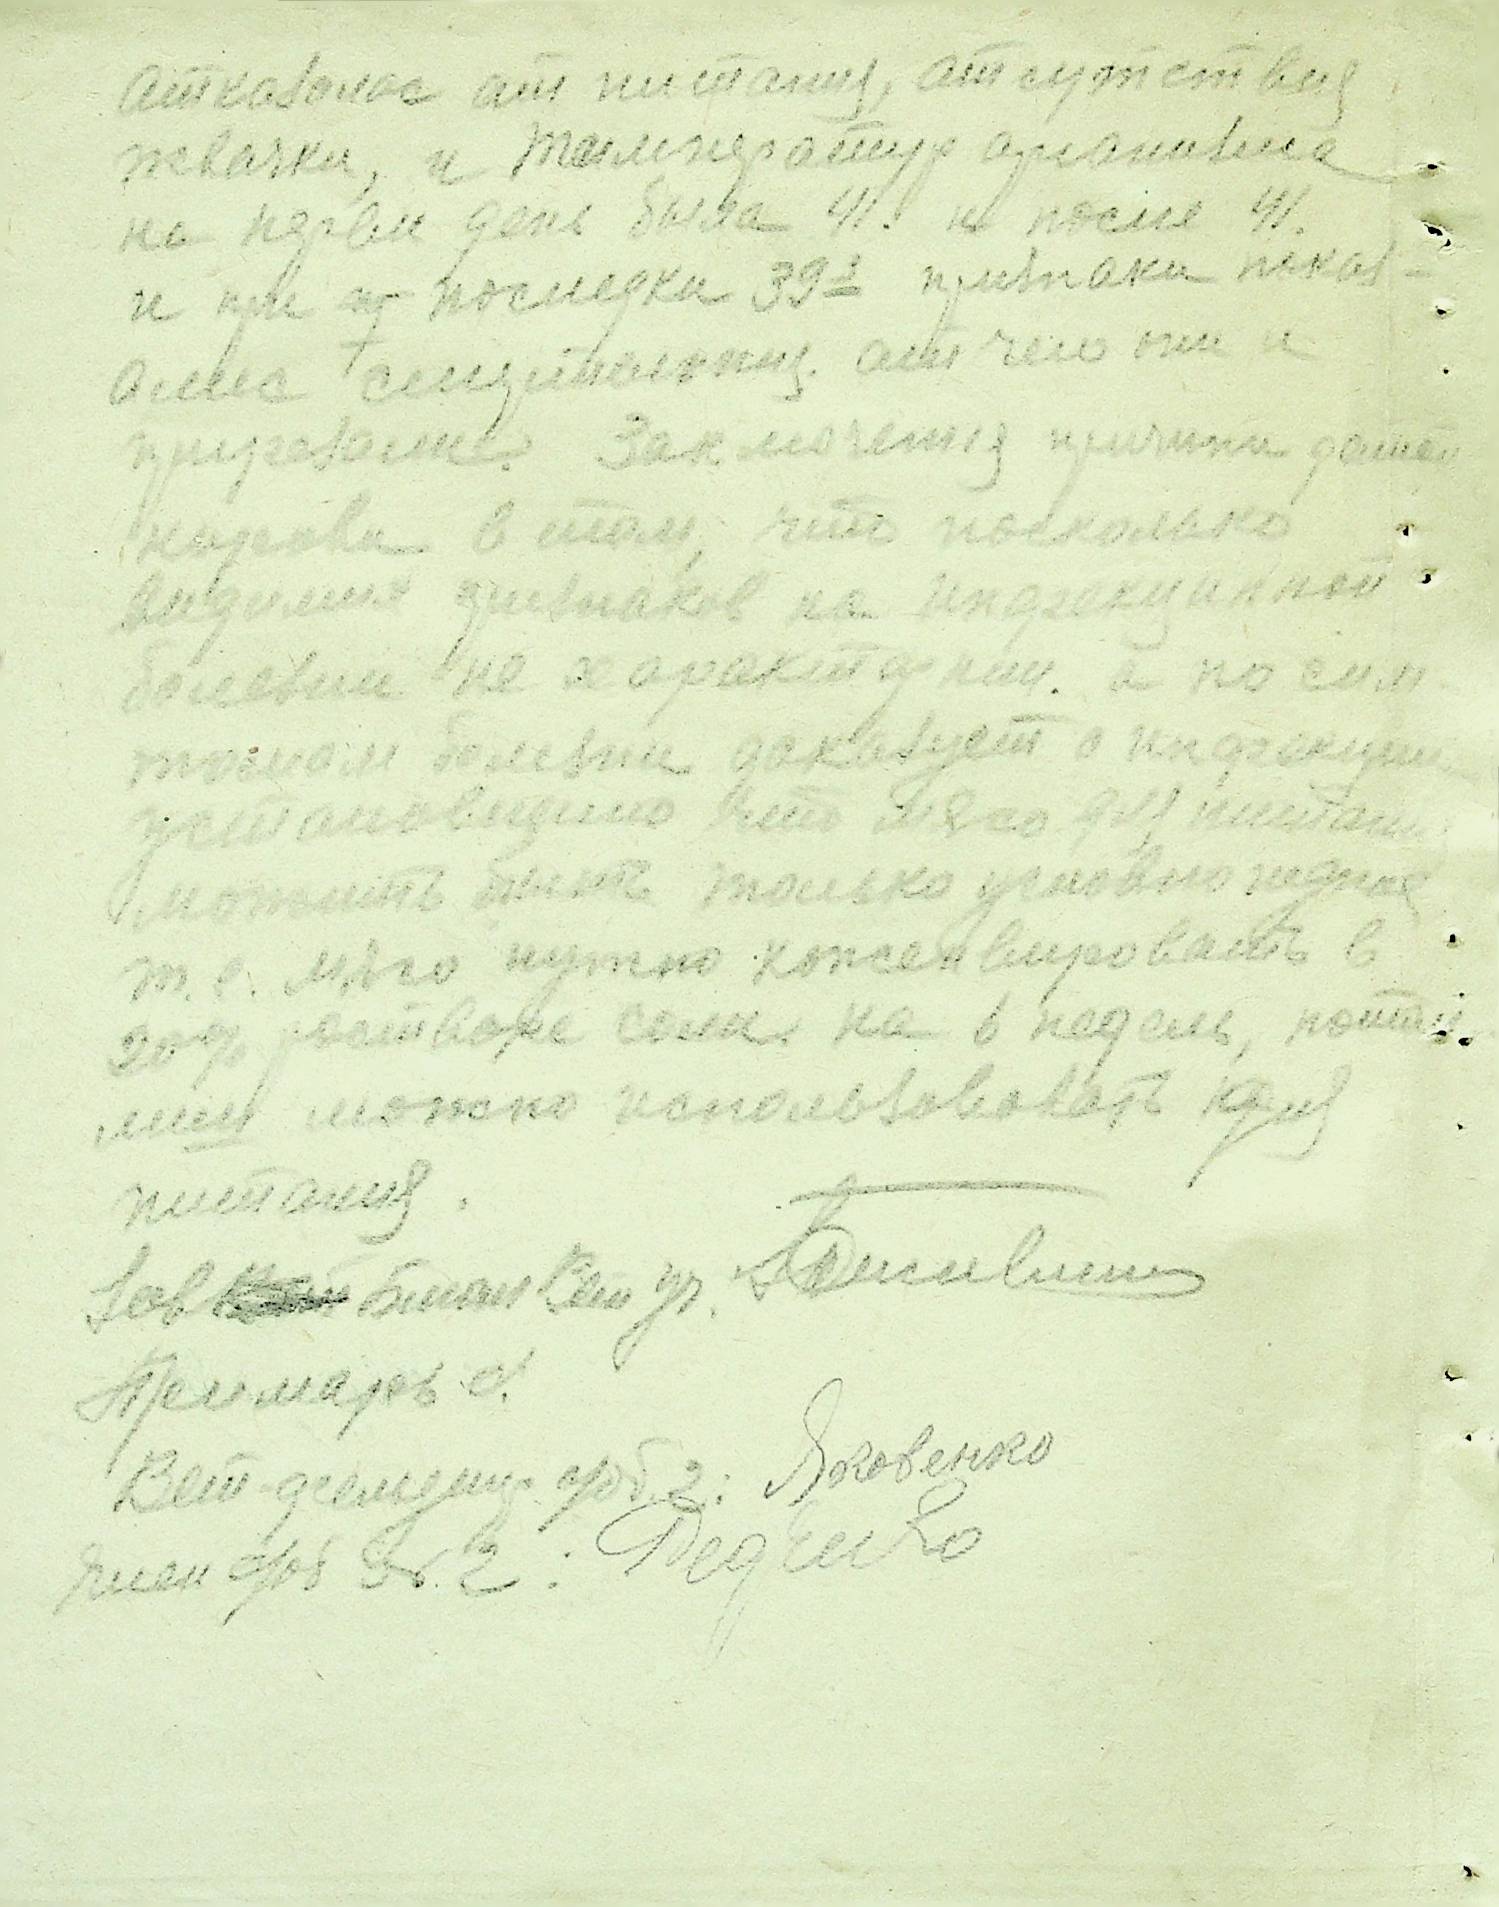 аткозалас ат питания, атсутствия
жвачки, и температур арганизма
на перви день была 41. и после 41.
и при последки 39 признаки показ-
алис смертелния. ат чего они и
прирезали. Заключения причини даной
корови в том, что посколько
видимих признаков на инфрекцинной
болезни не характерни. а по сим
томам болезни доказует о инфрекции
установидино что мясо для питани
можить быть только условно годная
т.е. мясо нужно консенвировать в
20% растворе соли на 6 недель, потом
можно использовать для
питания.
Зав Вет уч.
Примарь с.
Вет-фельдшер с/об 2: Яковенко
член с/об 2: Федченко